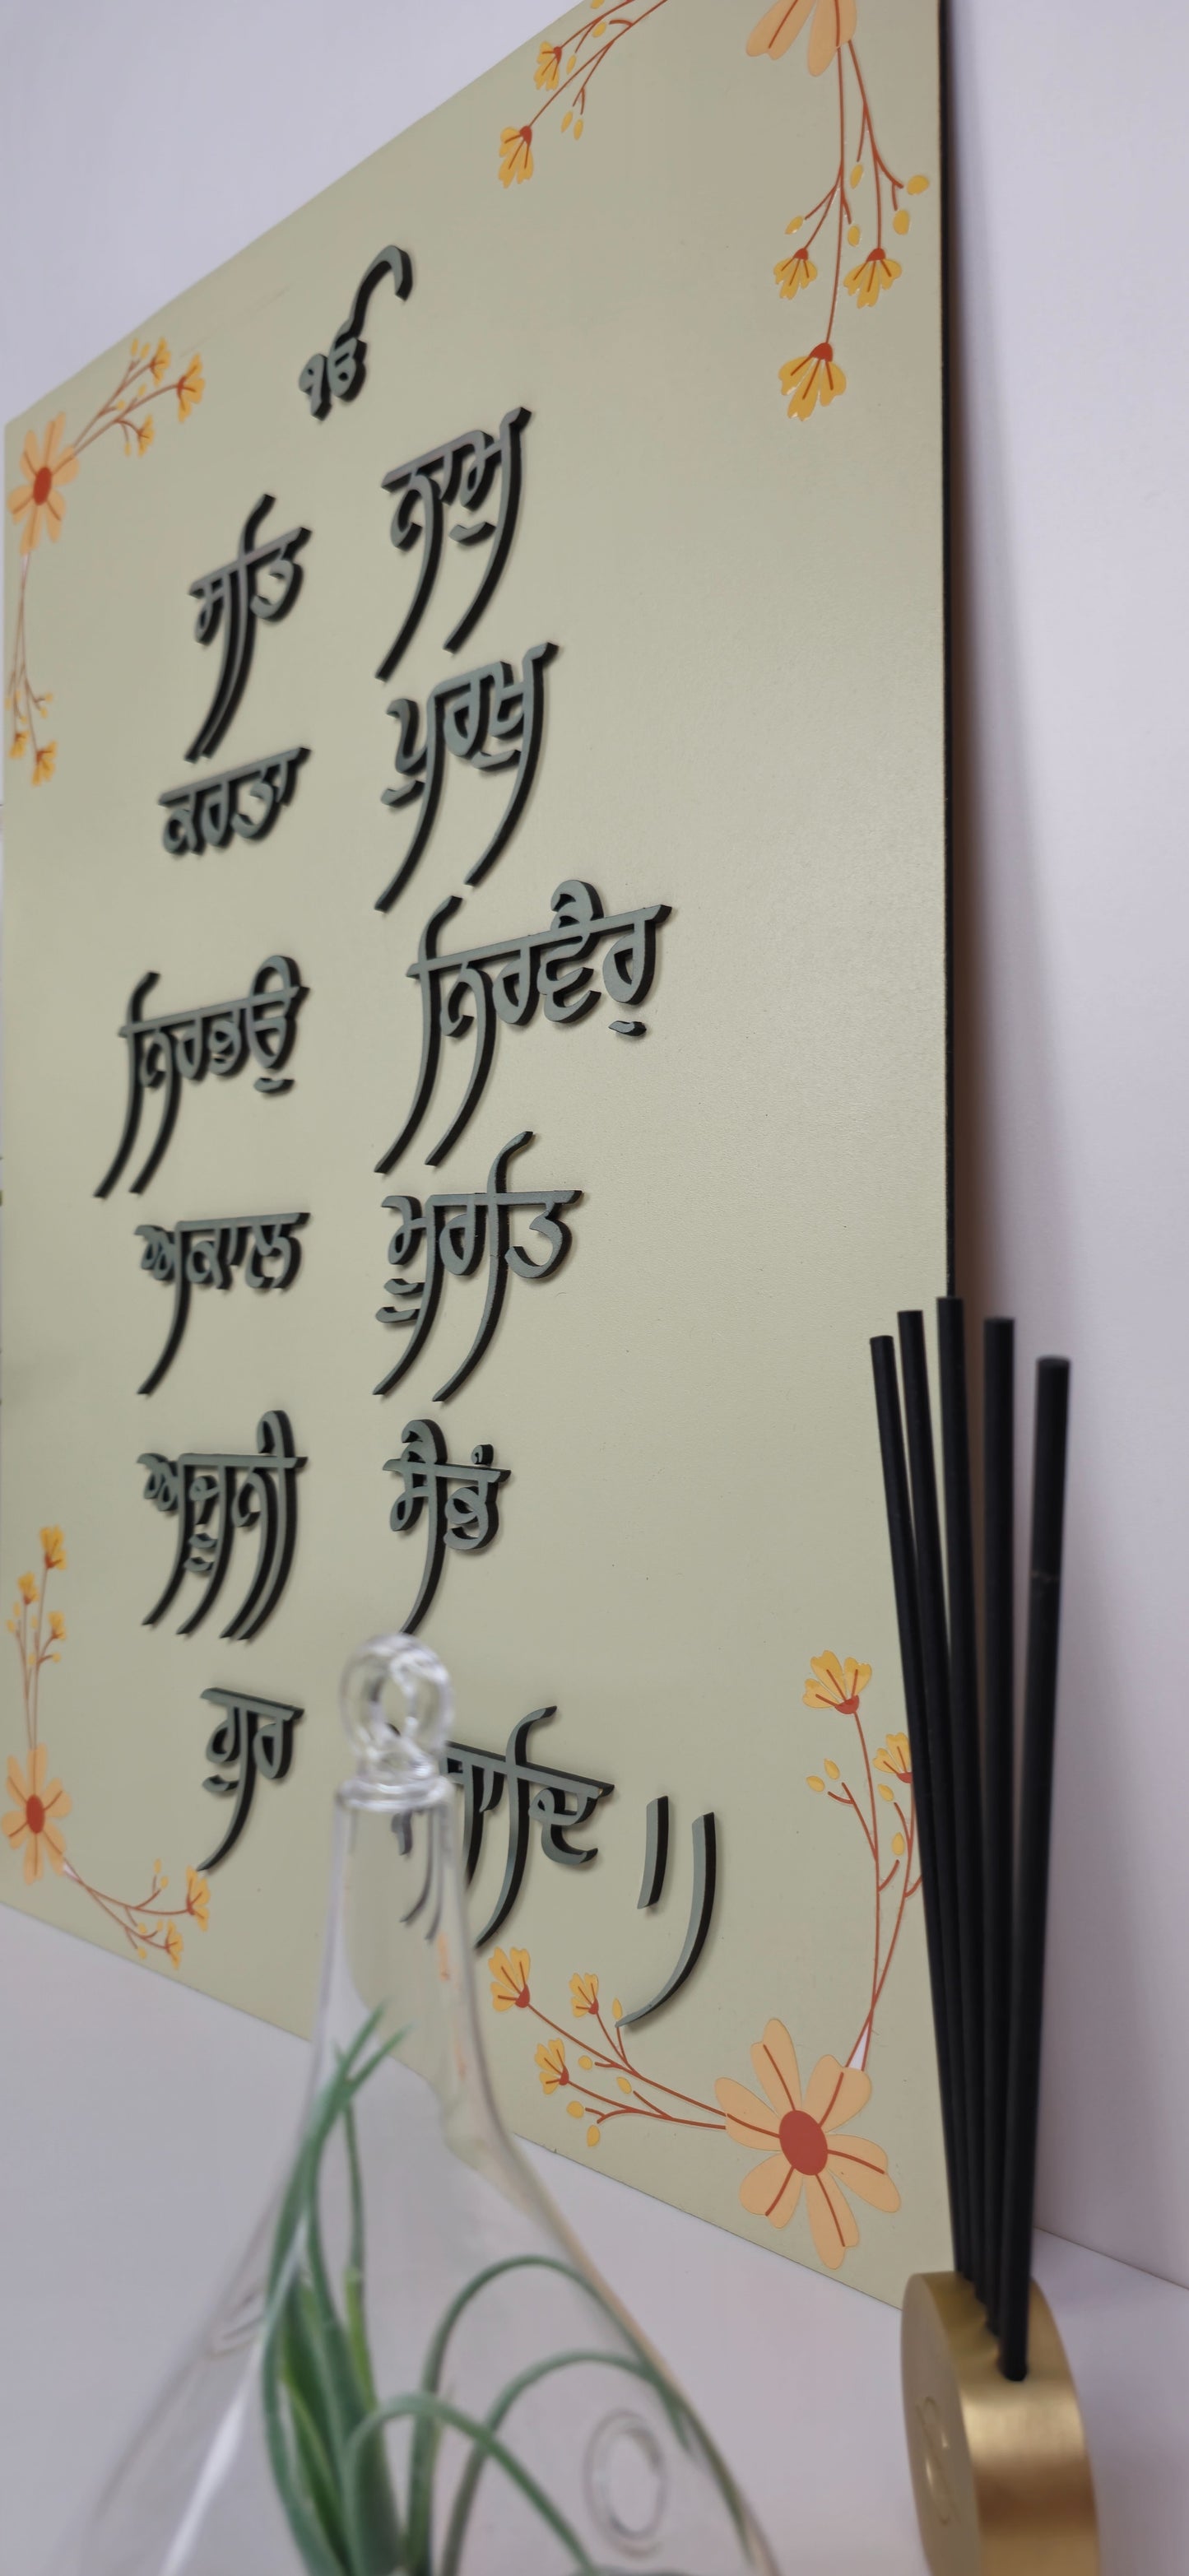 ੴ
ਸਤਿ ਨਾਮੁ
ਕਰਤਾ ਪੁਰਖੁ
ਨਿਰਭਉ ਨਿਰਵੈਰੁ
ਅਕਾਲ ਮੂਰਤਿ
ਅਜੂਨੀ ਸੈਭੰ
ਗੁਰ ॥